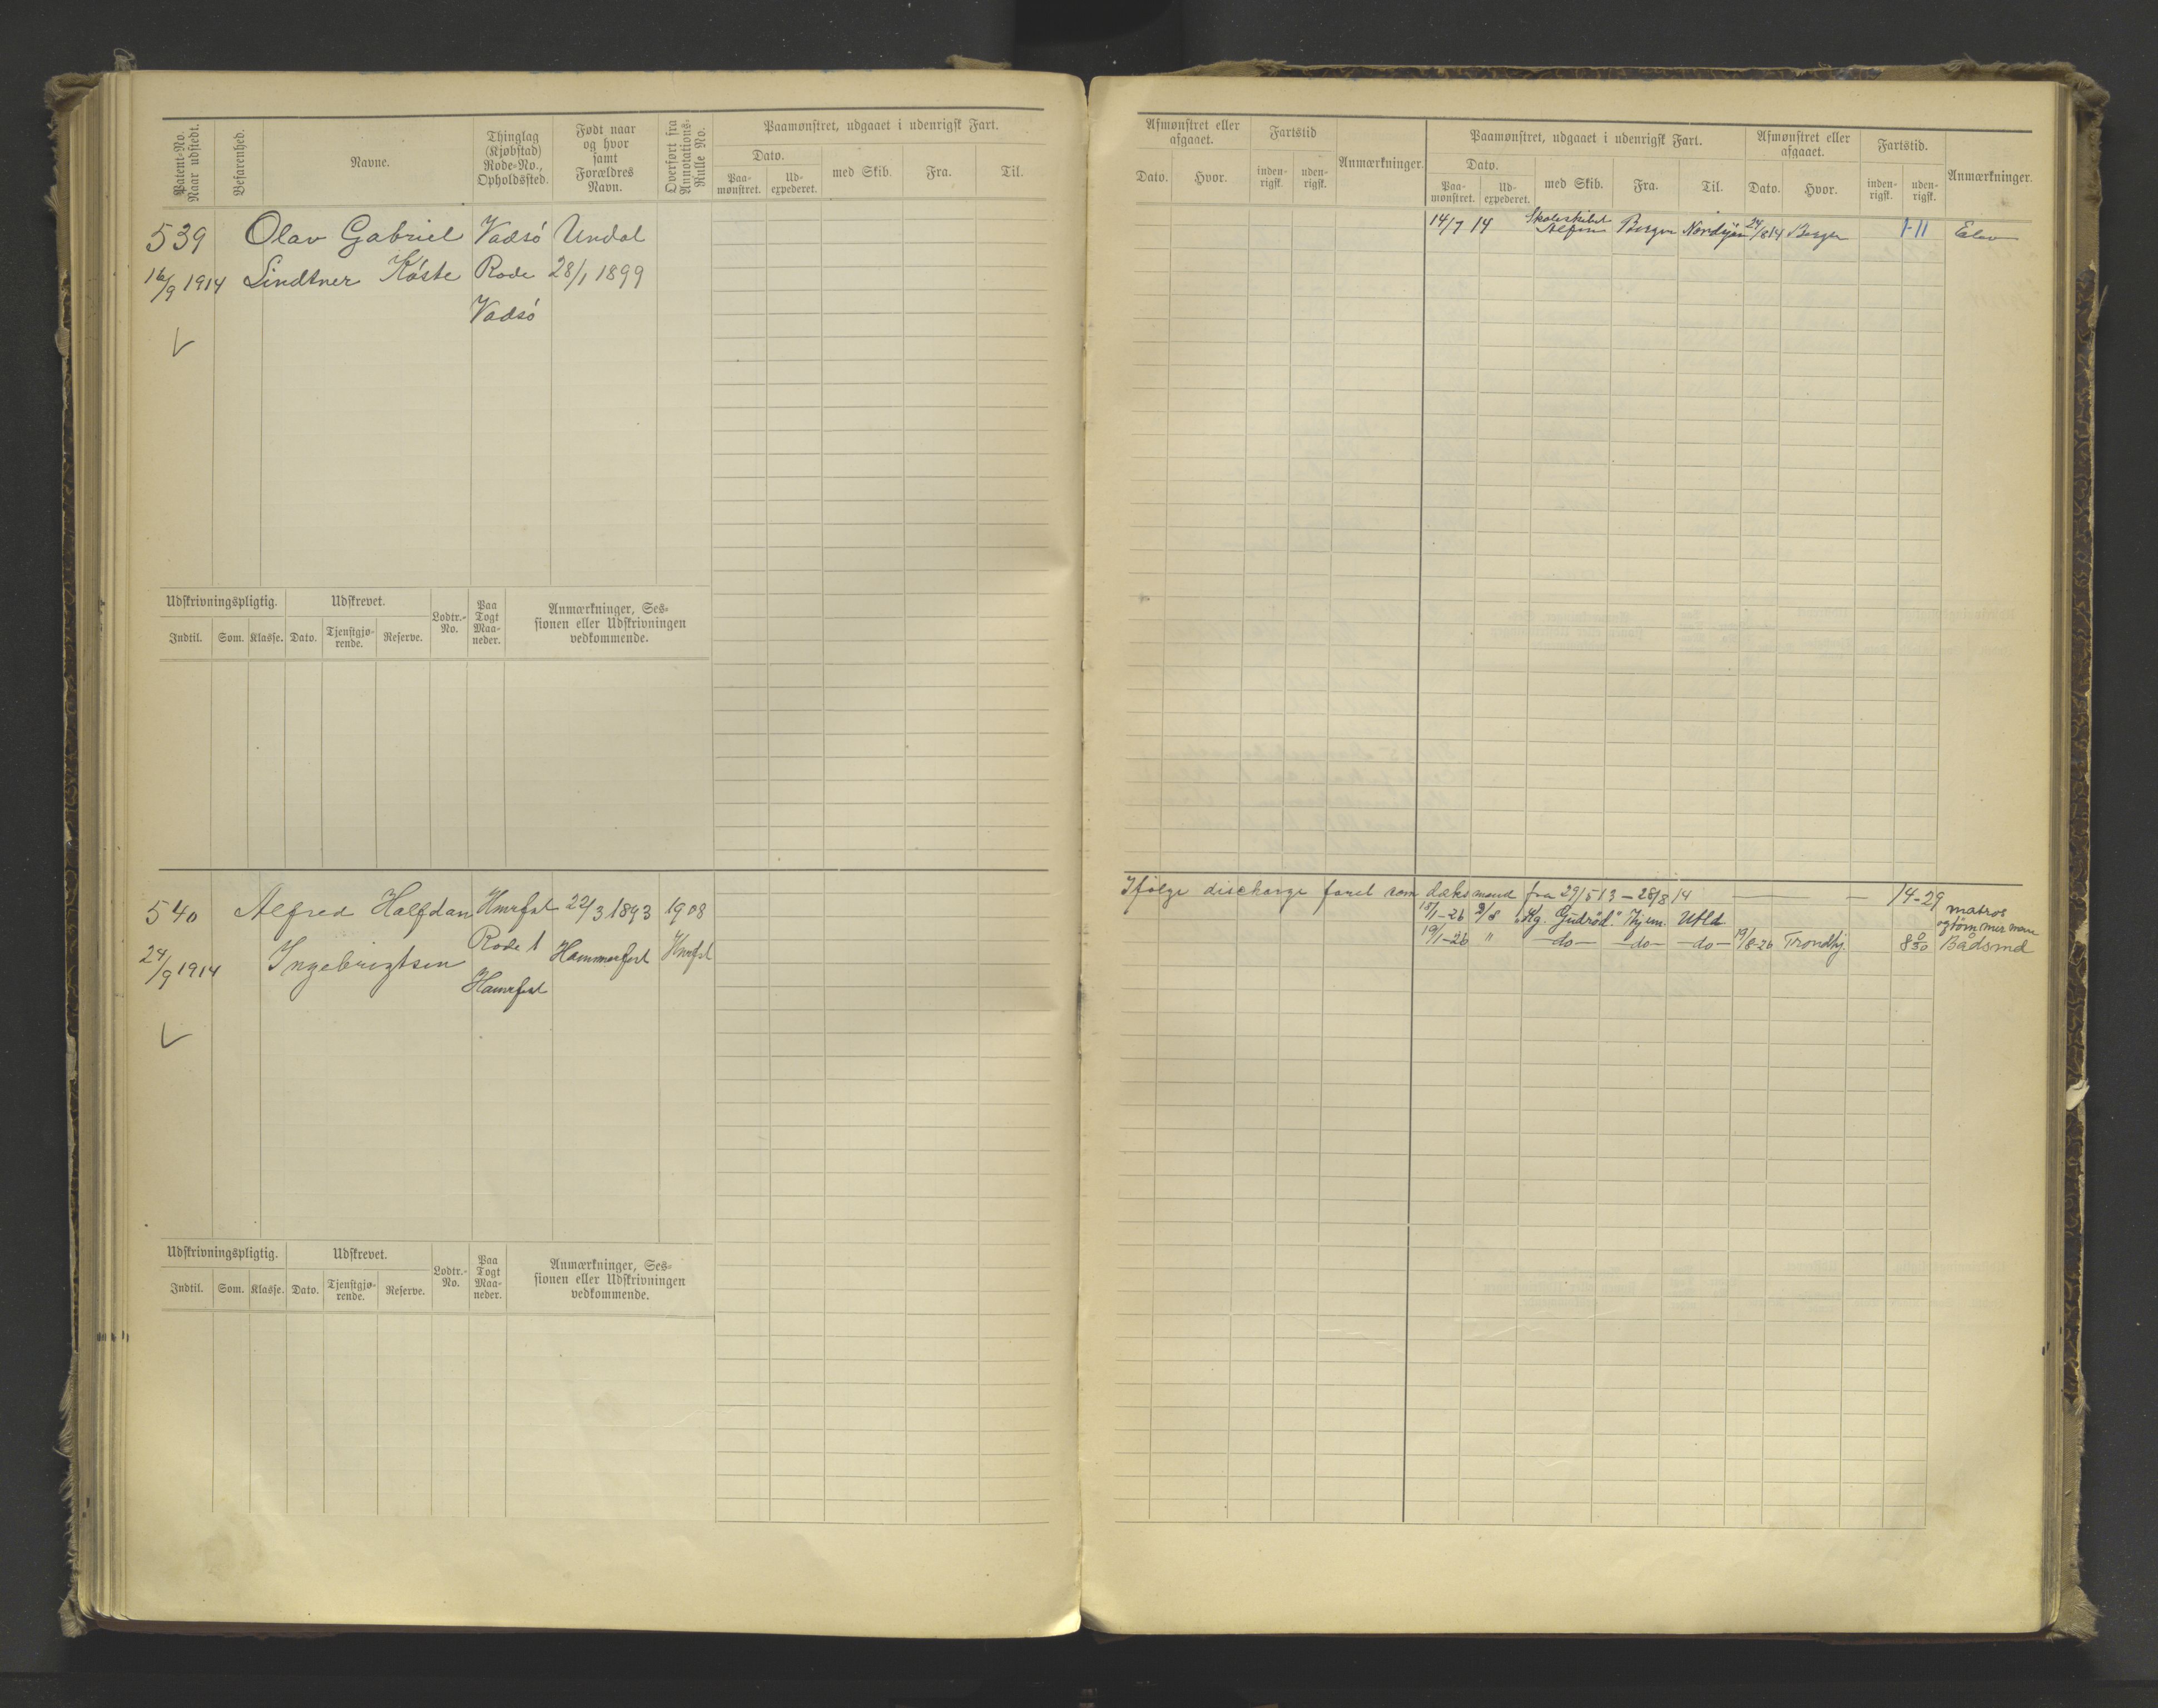 Patent-No.
Naar udstedt.
Befarenhed.
Navne.
Thinglag
(Kjøbstad)
Rode-No.,
Opholdssted.
Født naar
og hvor
samt
Forældres
Navn.
Overført fra
Annotations-
Rulle No.
Paamønstret, udgaaet i udenrigsk Fart.
Dato.
Paa-
mønstret.
Ud-
expederet.
med Skib.
Fra.
Til.
539
16/9 1914
Olav Gabriel
Lindtner Köste
Vadsö
Rode
Vadsö
Undal
28/1 1899
Udskrivningspligtig.
Udskrevet.
Lodtr.-
No.
Paa
Togt
Maa-
neder.
Anmærkninger, Ses-
sionen eller Udskrivningen
vedkommende.
Indtil.
Som.
Klasse.
Dato.
Tjenstgjø-
rende.
Reserve.
540
24/9 1914
Alfred Halfdan
Ingebrigtsen
Hmrfst
Rode 1
Hamrfest
22/3 1893
Hammerfest
1908
Hmrfst
Udskrivningspligtig.
Udskrevet.
Lodtr.-
No.
Paa
Togt
Maa-
neder.
Anmærkninger, Ses-
sionen eller Udskrivningen
vedkommende.
Indtil.
Som.
Klasse.
Dato.
Tjenstgjø-
rende.
Reserve.
Afmønstret eller
afgaaet.
Fartstid
Anmærkninger.
Dato.
Hvor.
inden-
rigsk.
uden-
rigsk.
Paamønstret, udgaaet i udenrigsk Fart.
Afmønstret eller
afgaaet.
Fartstid.
Anmærkninger.
Dato.
Paa-
mønstret.
Ud-
expederet.
med Skib.
Fra.
Til.
Dato.
Hvor.
inden-
rigsk.
uden-
rigsk.
14/7 14 Skoleskibet Bergen 24/8 14 Bergen 1-11 Elev
Ifølge discharge faret som dæksmand fra 29/5 13 - 28/8 14 — — 14-29 matros
og tömmermann
15/1-26 2/8 "Kg. Gudröd." Hjem. Utld
19/1-26 " -do- -do- -do- 19/8-26 Trondhj. 8 0/30 Bådsmd